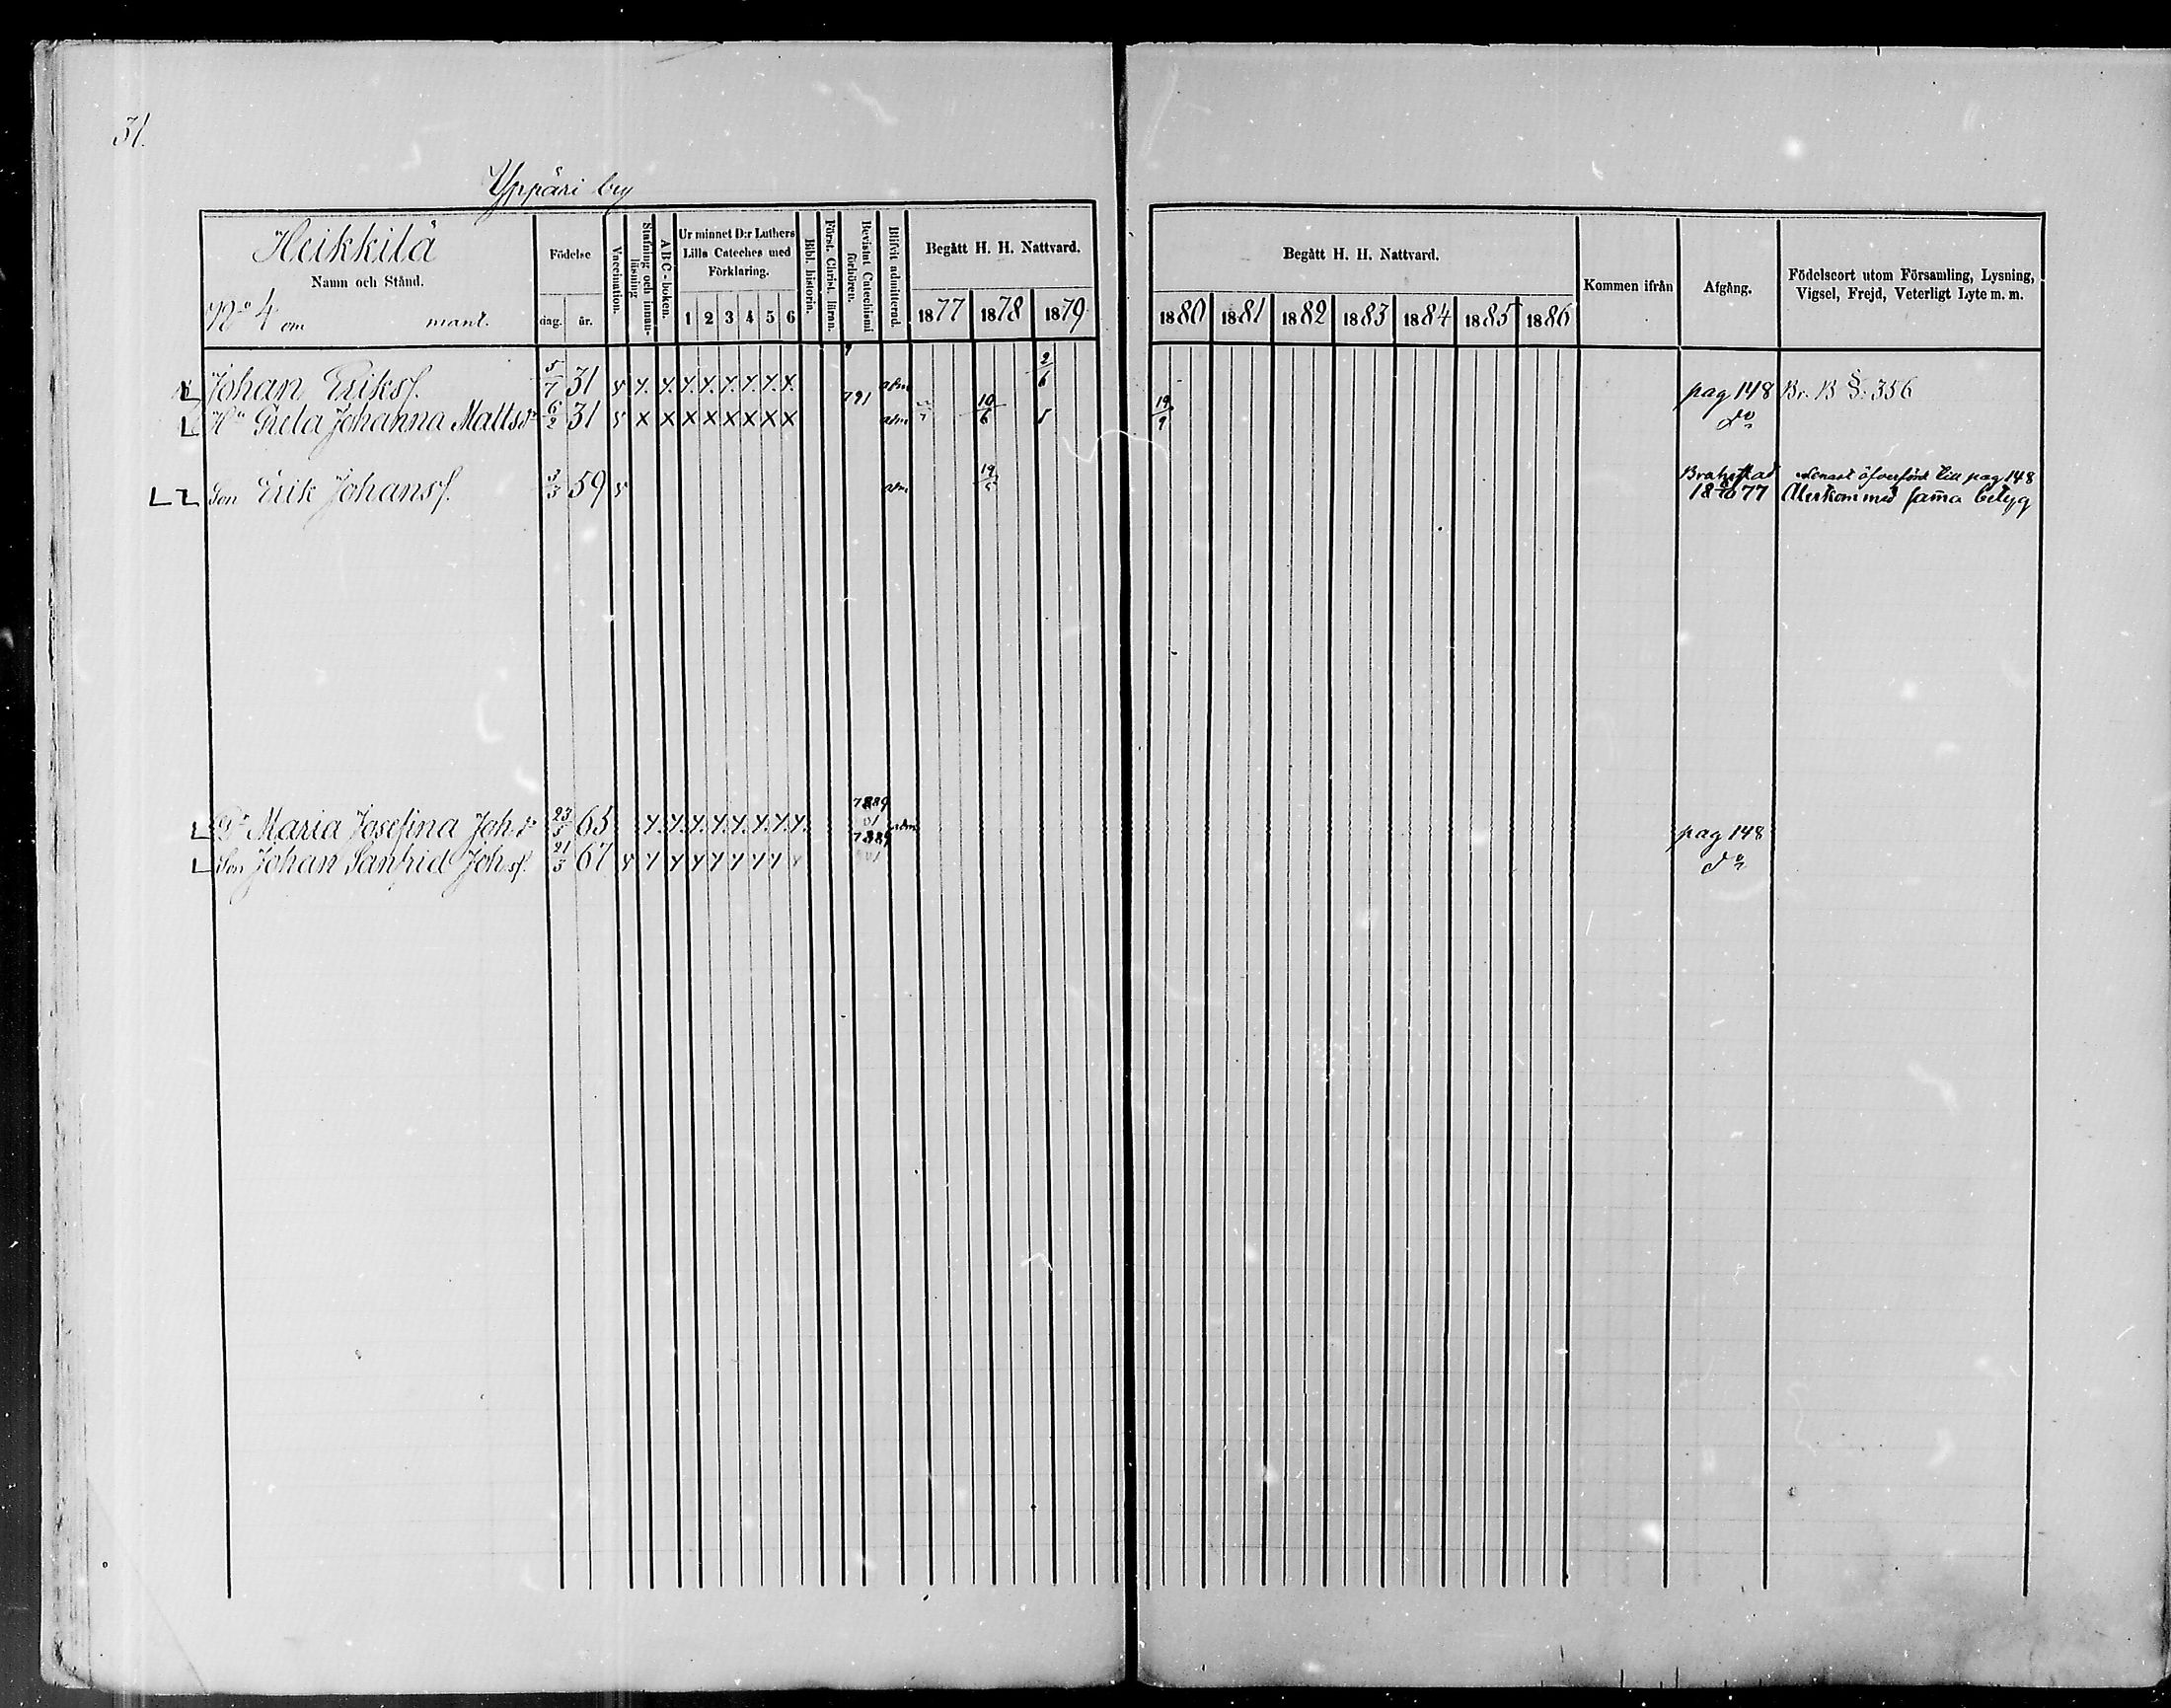 31.
Yppäri by
Heikkilä
Namn och Stånd.
No 4 om mant.
Födelse
dag. år.
Vaccination.
Stafning och innan-läsning
ABC-boken.
Ur minnet D:r Luthers Lilla Cateches med Förklaring.
1 2 3 4 5 6
Bibl. historia.
Först. Christ. läran.
Bevistat Catechismi förhören.
Blifvit admitterad.
Begått H. H. Nattvard.
1877 1878 1879
Begått H. H. Nattvard.
1880 1881 1882 1883 1884 1885 1886
Kommen ifrån
Afgång.
Födelseort utom Församling, Lysning, Vigsel, Frejd, Veterligt Lyte m. m.
Johan Eriksf. 5/7 31 adm 2/6 pag 148 Br. B §. 356
Hu Greta Johanna Mattsdr 6/2 31 x x x x x x x x 791 adm 10/6 19/9 do
Son Erik Johansf. 3/3 59 adm Brahestad 18 77 senast öfverförd till pag 148
Återkom med samma betyg
Dr Maria Josefina Joh.dr 23/5 65 adm pag 148
Son Johan Sanfrid Johsf. 21/3 67 do